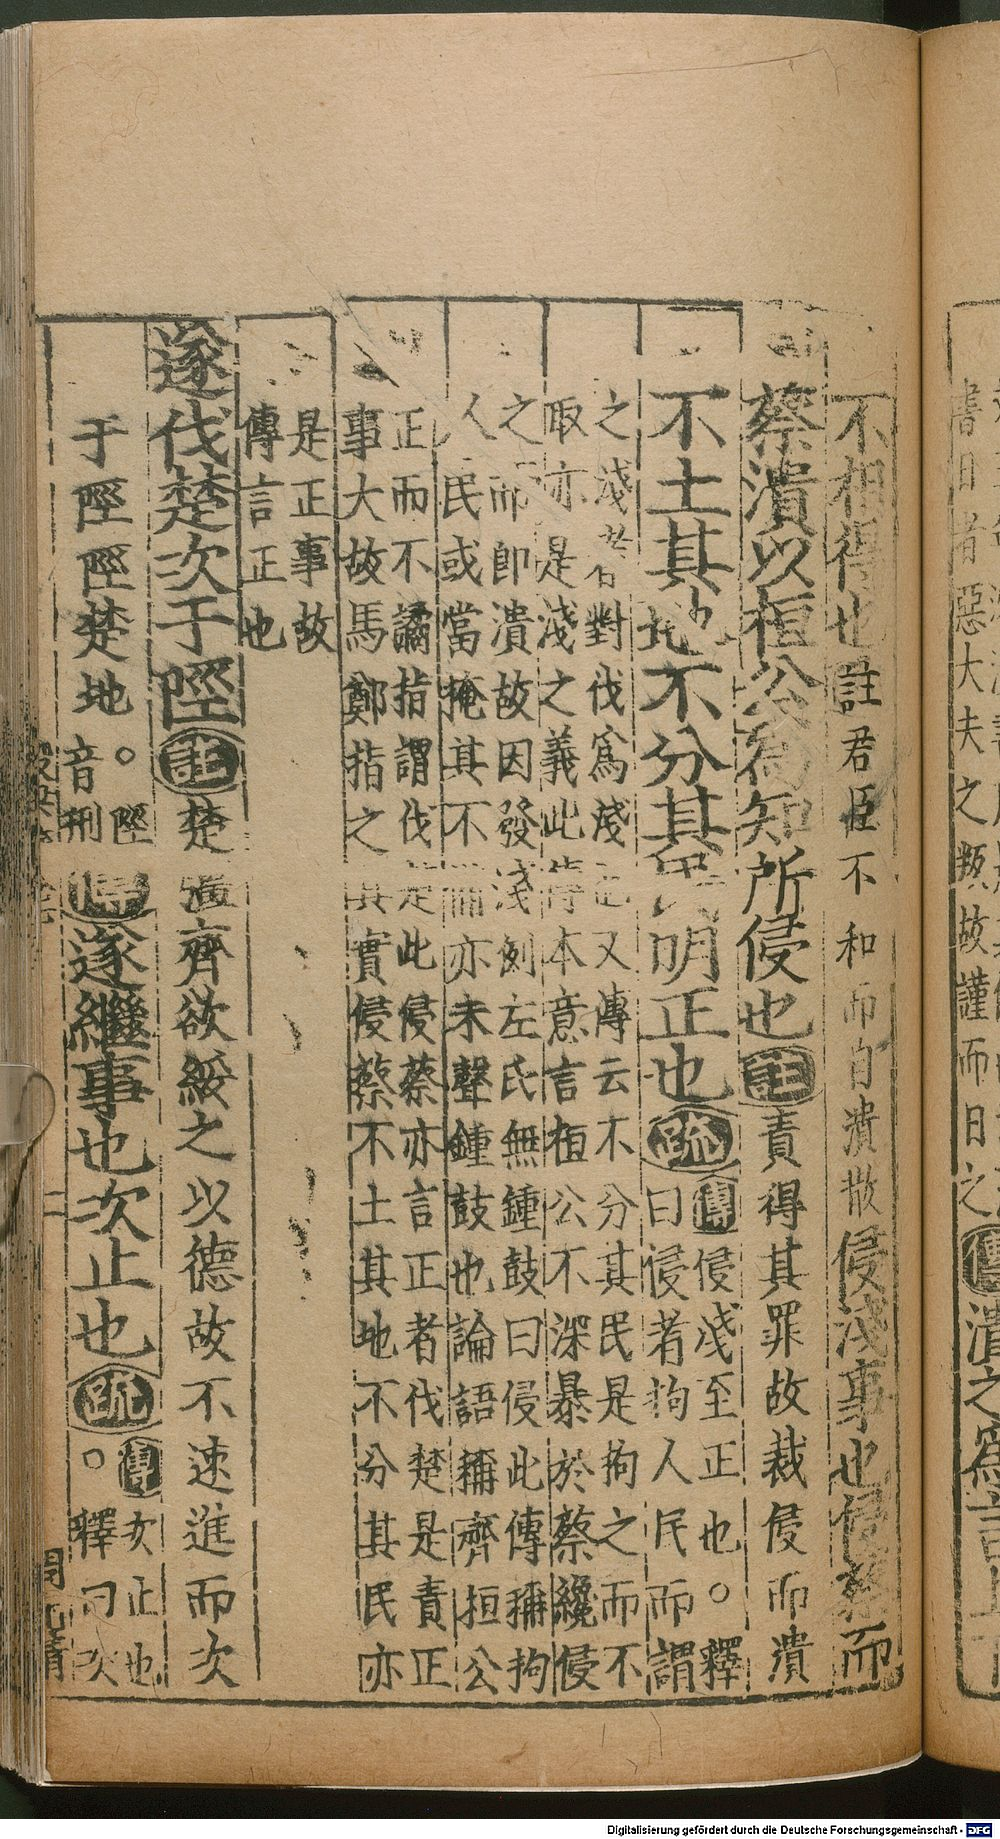 不相得也註君臣不和而自潰散侵淺事也侵蔡而
蔡潰以桓公爲知所侵也註責得其罪故裁侵而潰
不土其地不分其民明正也疏傳侵淺至正也○釋
曰侵者拘人民而謂
之淺者對伐爲淺也又傳云不分其民是拘之而不
取亦是淺之義此傳本意言桓公不深暴於蔡纔侵
之而即潰故因發淺例左氏無鍾鼓曰侵此傳稱拘
人民或當掩其不備亦未聲鍾鼓也論語稱齊桓公
正而不譎指謂伐楚此侵蔡亦言正者伐楚是責正
事大故馬鄭指之其實侵蔡不土其地不分其民亦
是正事故
傳言正也
遂伐楚次于陘註楚彊齊欲綏之以德故不速進而次
于陘陘楚地。陘音刑傳遂繼事也次止也疏傳次止也
○釋曰次
書曰者惡大夫之叛故謹而日之傳潰之爲言上下
Digitalisierung gefördert durch die Deutsche Forschungsgemeinschaft - DFG